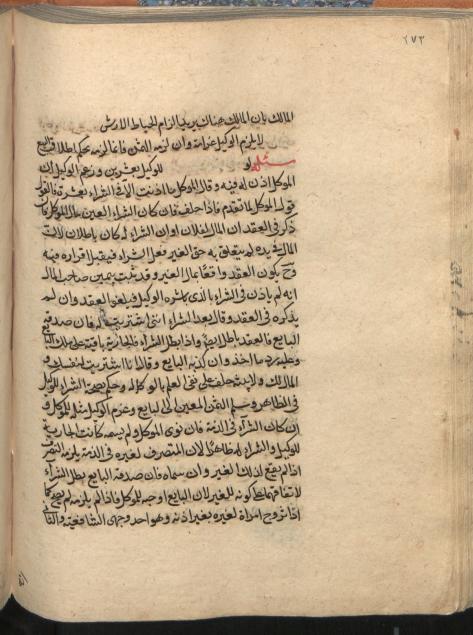 ٢٧٣
المالك بان المالك هناك يريد الزام الخياط الارش
لا يلزم الوكيل غرامة وان لزمه الثمن فانما لزمه بحكم اطلاق البيع
مسئلة لو للوكيل بعشرين وزعم الوكيل ان
الموكل اذن له فيه وقال الموكل ما اذنت الا في الشراء بعشرة فالقول
قول الموكل لما تقدم فاذا حلف فان كان الشراء بعين مال الموكل فان
ذكر في العقد ان المال لفلان وان الشراء له كان باطلا لان
المال في يده لم يتعلق به حق الغير فعل الشراء فيقبل اقراره فيه
وح يكون العقد واقعا بمال الغير وقد ثبت بيمين صاحب المال
انه لم ياذن في الشراء بالذي باشره الوكيل فيلغو العقد وان لم
يذكره في العقد وقال بعد الشراء انني اشتريت له فان صدقه
البايع فالعقد باطل ايضا واذا بطل الشراء فالجارية باقية على ملك البايع
وعليه رد ما اخذ وان كذبه البايع وقال انما اشتريت لنفسك و
المال لك ولا بينة حلف على نفي العلم بالوكالة وحكم بصحة الشراء للوكيل
في الظاهر وسلم الثمن المعين الى البايع وغرم الوكيل مثله للموكل و
ان كان الشراء في الذمة فان نوى الموكل ولم يسمه كانت الجارية
للوكيل والشراء له ظاهرا لان المتصرف لغيره في الذمة يلزمه التصرف
اذا لم يقع لذلك الغير وان سماه فان صدقه البايع بطل الشراء
لاتفاقهما على كونه للغير لان البايع اوجبه للموكل فاذا لم يلزمه لم يصح كما
اذا تزوج امراة لغيره بغير اذنه وهو احد وجهي الشافعية والثاني